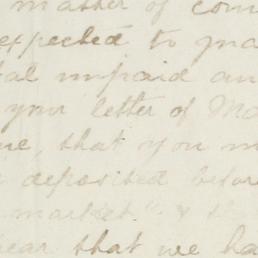 matter of com
expected to gua
al unpaid an
your letter of Ma
me, that you m
deposited before
market" & the
hear that we ha